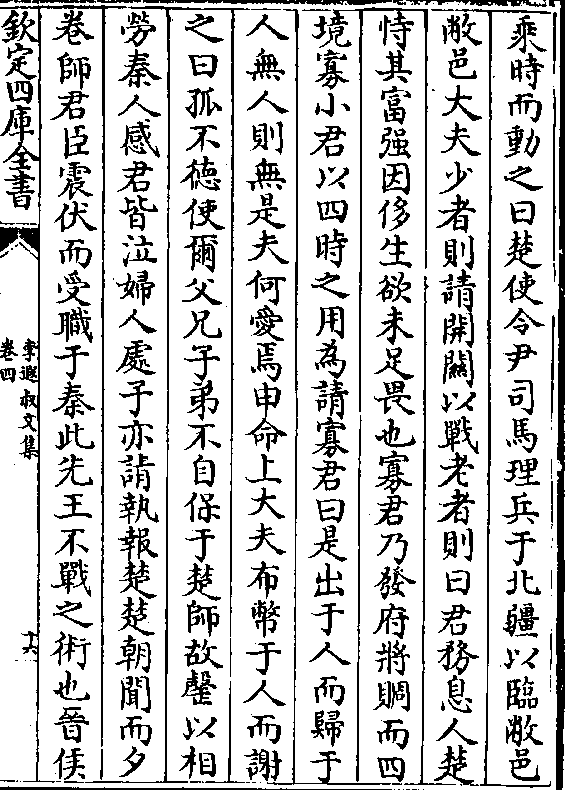 乘時而動之曰楚使令尹司馬理兵于北疆以臨敝邑
敝邑大夫少者則請開關以戰老者則曰君務息人楚
恃其富强因侈生欲未足畏也寡君乃發府將賙而四
境寡小君以四時之用為請寡君曰是出于人而歸于
人無人則無是夫何愛焉申命上大夫布幣于人而謝
之曰孤不徳使爾父兄子弟不自保于楚師故罄以相
勞秦人感君皆泣婦人處子亦請執報楚楚朝聞而夕
卷師君臣震伏而受職于秦此先王不戰之術也晉侯
欽定四庫全書
李遐叔文集
卷四
十六